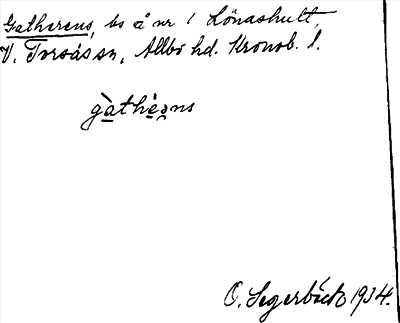 Gatherens, bs å nr 1 Lönashult,
V. Torsås sn, Allbo hd. Kronob. l.
gàthèƏns
O. Segerbäck 1934.